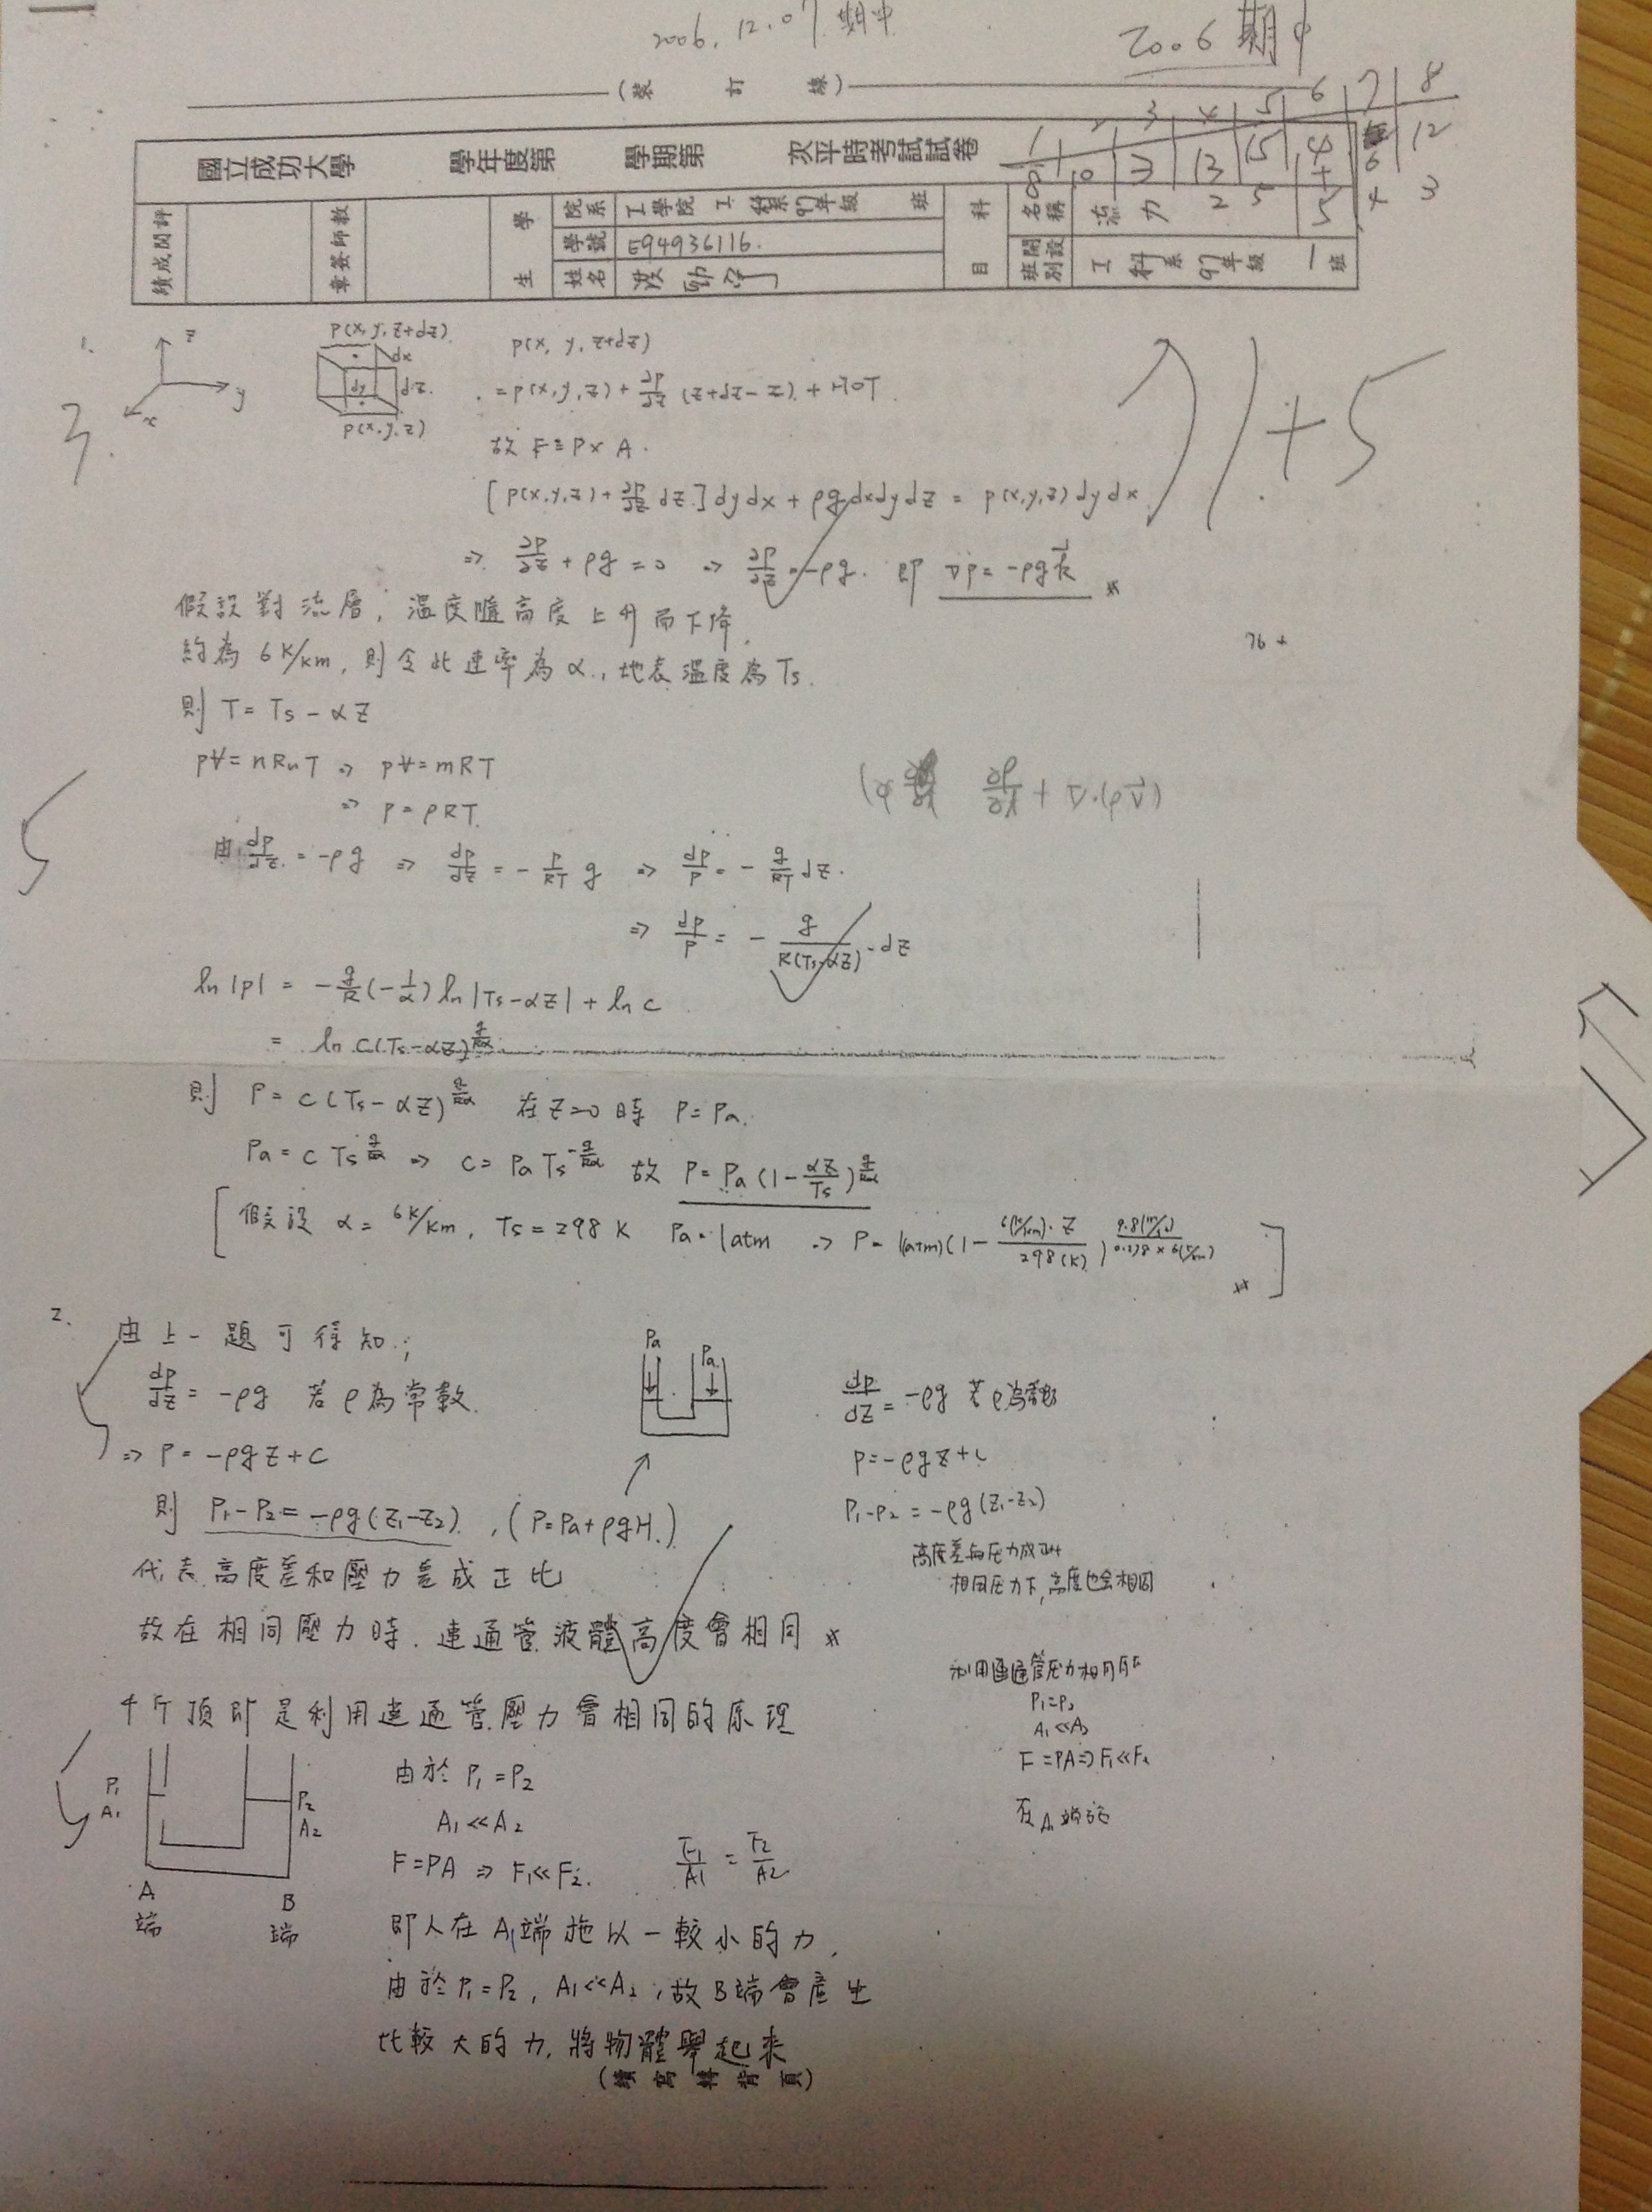 2006. 12. 07 期中
2006 期中
(裝 訂 線)
國立成功大學 學年度第 學期第 次平時考試試卷
1 2 3 4 5 6 7 8
院系 工學院 工科系97年級 班
學號 E94936116.
姓名
學生
科目
名稱 流力
開設班別 工科系97年級 一班
1.
z
y
x
P(x, y, z+dz)
dx
dy
dz.
P(x,y,z)
P(x, y, z+dz)
= P(x,y,z) + ∂P/∂z (z+dz-z) + HOT
故 F = P × A.
[P(x,y,z) + ∂P/∂z dz] dydx + ρg dxdydz = P(x,y,z) dydx
⇒ ∂P/∂z + ρg = 0 ⇒ ∂P/∂z = -ρg. 即 ∇p = -ρg k
71+5
假設對流層, 溫度隨高度上升而下降,
約為 6 K/km, 則令此速率為 α, 地表溫度為 Ts.
76 +
則 T = Ts - αZ
p∀ = nRuT ⇒ p∀ = mRT
⇒ P = ρRT.
+ ∇·(ρV)
由 dp/dz = -ρg ⇒ dp/dz = - P/RT g ⇒ dp/P = - g/RT dz.
⇒ dp/P = - g/R(Ts-αZ) · dz
ln |P| = - g/R (-1/α) ln |Ts-αZ| + ln c
= ln c(Ts-αZ)^g/Rα
則 P = c(Ts-αZ)^g/Rα 在 z=0 時 P = Pa.
Pa = c Ts^g/Rα ⇒ c = Pa Ts^-g/Rα 故 P = Pa (1 - αZ/Ts)^g/Rα
[假設 α = 6 K/km, Ts = 298 K Pa = 1atm ⇒ P = 1(atm)(1 - 6(K/km)·Z/298(K))
2.
由上一題可得知;
dp/dz = -ρg 若 ρ 為常數.
⇒ P = -ρgZ + C
則 P1-P2 = -ρg(Z1-Z2). , (P=Pa+ρgH.)
代表高度差和壓力差成正比
故在相同壓力時. 連通管液體高度會相同
Pa
Pa
dp/dZ = -ρg 若 ρ為常數
P = -ρgz + c
P1-P2 = -ρg(Z1-Z2)
高度差与压力成正比
相同压力下, 高度也会相同
千斤頂即是利用連通管壓力會相同的原理
P1
A1
P2
A2
A
端
B
端
由於 P1 = P2
A1 << A2
F=PA ⇒ F1 << F2.
F1/A1 = F2/A2
即人在 A端施以一較小的力,
由於 P1 = P2, A1 << A2, 故 B端會產生
比較大的力, 將物體舉起來
利用連通管压力相同
P1=P2
A1<<A2
F=PA⇒F1<<F2
(續寫轉背頁)